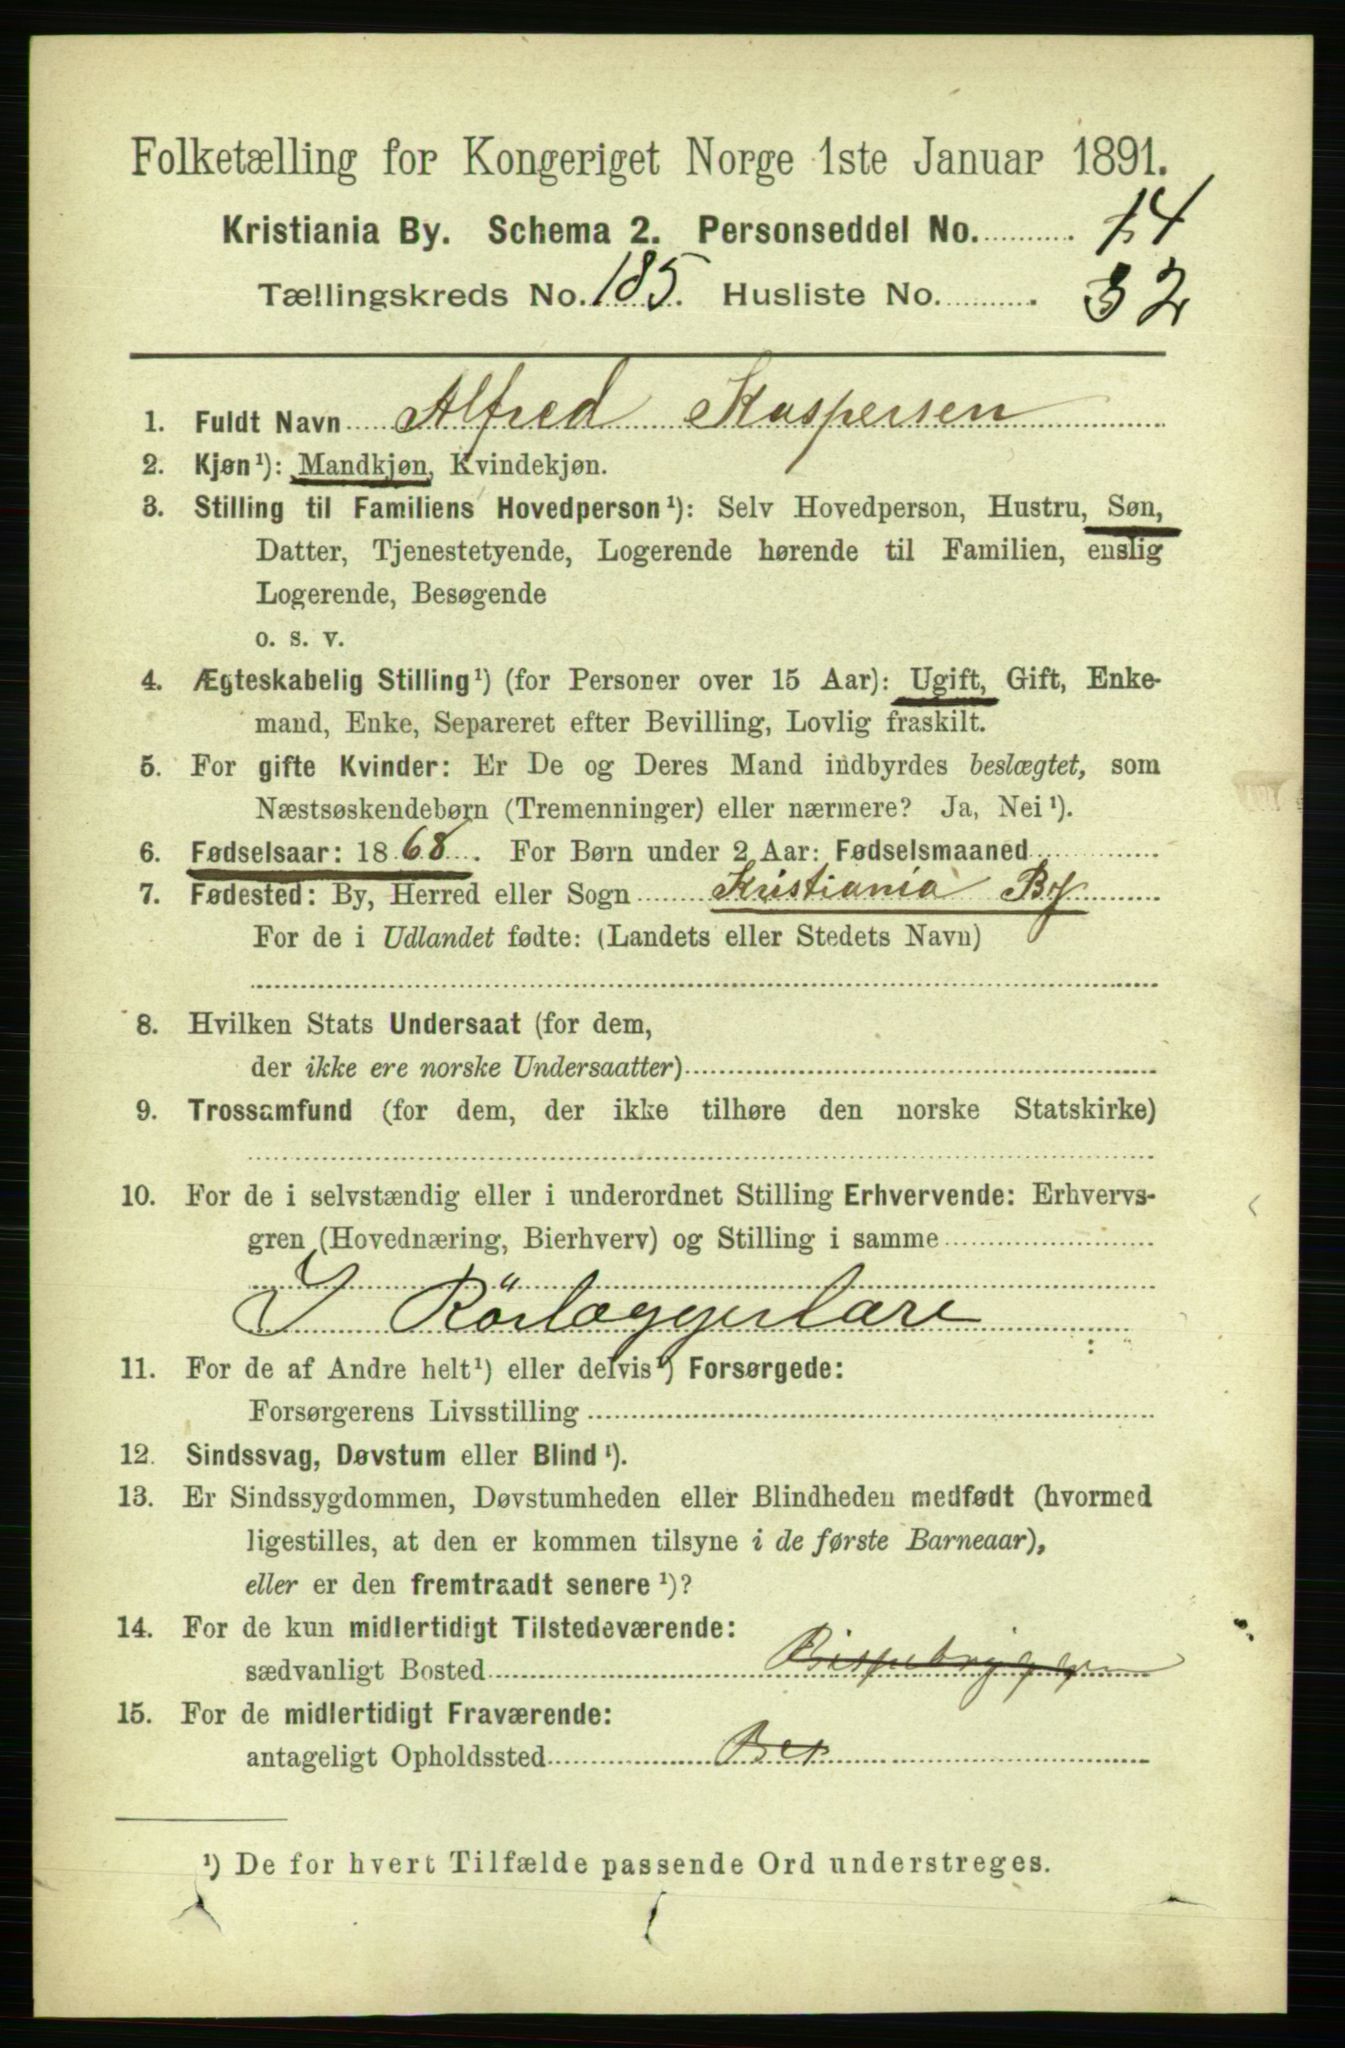 Folketælling for Kongeriget Norge 1ste Januar 1891.
Kristiania By. Schema 2. Personseddel No. 14
Tællingskreds No. 185. Husliste No. 32
1. Fuldt Navn Alfred Kaspersen
2. Kjøn¹): Mandkjøn, Kvindekjøn.
3. Stilling til Familiens Hovedperson¹): Selv Hovedperson, Hustru, Søn,
Datter, Tjenestetyende, Logerende hørende til Familien, enslig
Logerende, Besøgende
o. s. v.
4. Ægteskabelig Stilling¹) (for Personer over 15 Aar): Ugift, Gift, Enke-
mand, Enke, Separeret efter Bevilling, Lovlig fraskilt.
5. For gifte Kvinder: Er De og Deres Mand indbyrdes beslægtet, som
Næstsøskendebørn (Tremenninger) eller nærmere? Ja, Nei¹).
6. Fødselsaar: 1868. For Børn under 2 Aar: Fødselsmaaned
7. Fødested: By, Herred eller Sogn Kristiania By
For de i Udlandet fødte: (Landets eller Stedets Navn)
8. Hvilken Stats Undersaat (for dem,
der ikke ere norske Undersaatter)
9. Trossamfund (for dem, der ikke tilhøre den norske Statskirke)
10. For de i selvstændig eller i underordnet Stilling Erhvervende: Erhvervs-
gren (Hovednæring, Bierhverv) og Stilling i samme
I Rörlæggerlære
11. For de af Andre helt¹) eller delvis¹) Forsørgede:
Forsørgerens Livsstilling
12. Sindssvag, Døvstum eller Blind¹).
13. Er Sindssygdommen, Døvstumheden eller Blindheden medfødt (hvormed
ligestilles, at den er kommen tilsyne i de første Barneaar),
eller er den fremtraadt senere¹)?
14. For de kun midlertidigt Tilstedeværende:
sædvanligt Bosted Bispebryggen
15. For de midlertidigt Fraværende:
antageligt Opholdssted
¹) De for hvert Tilfælde passende Ord understreges.